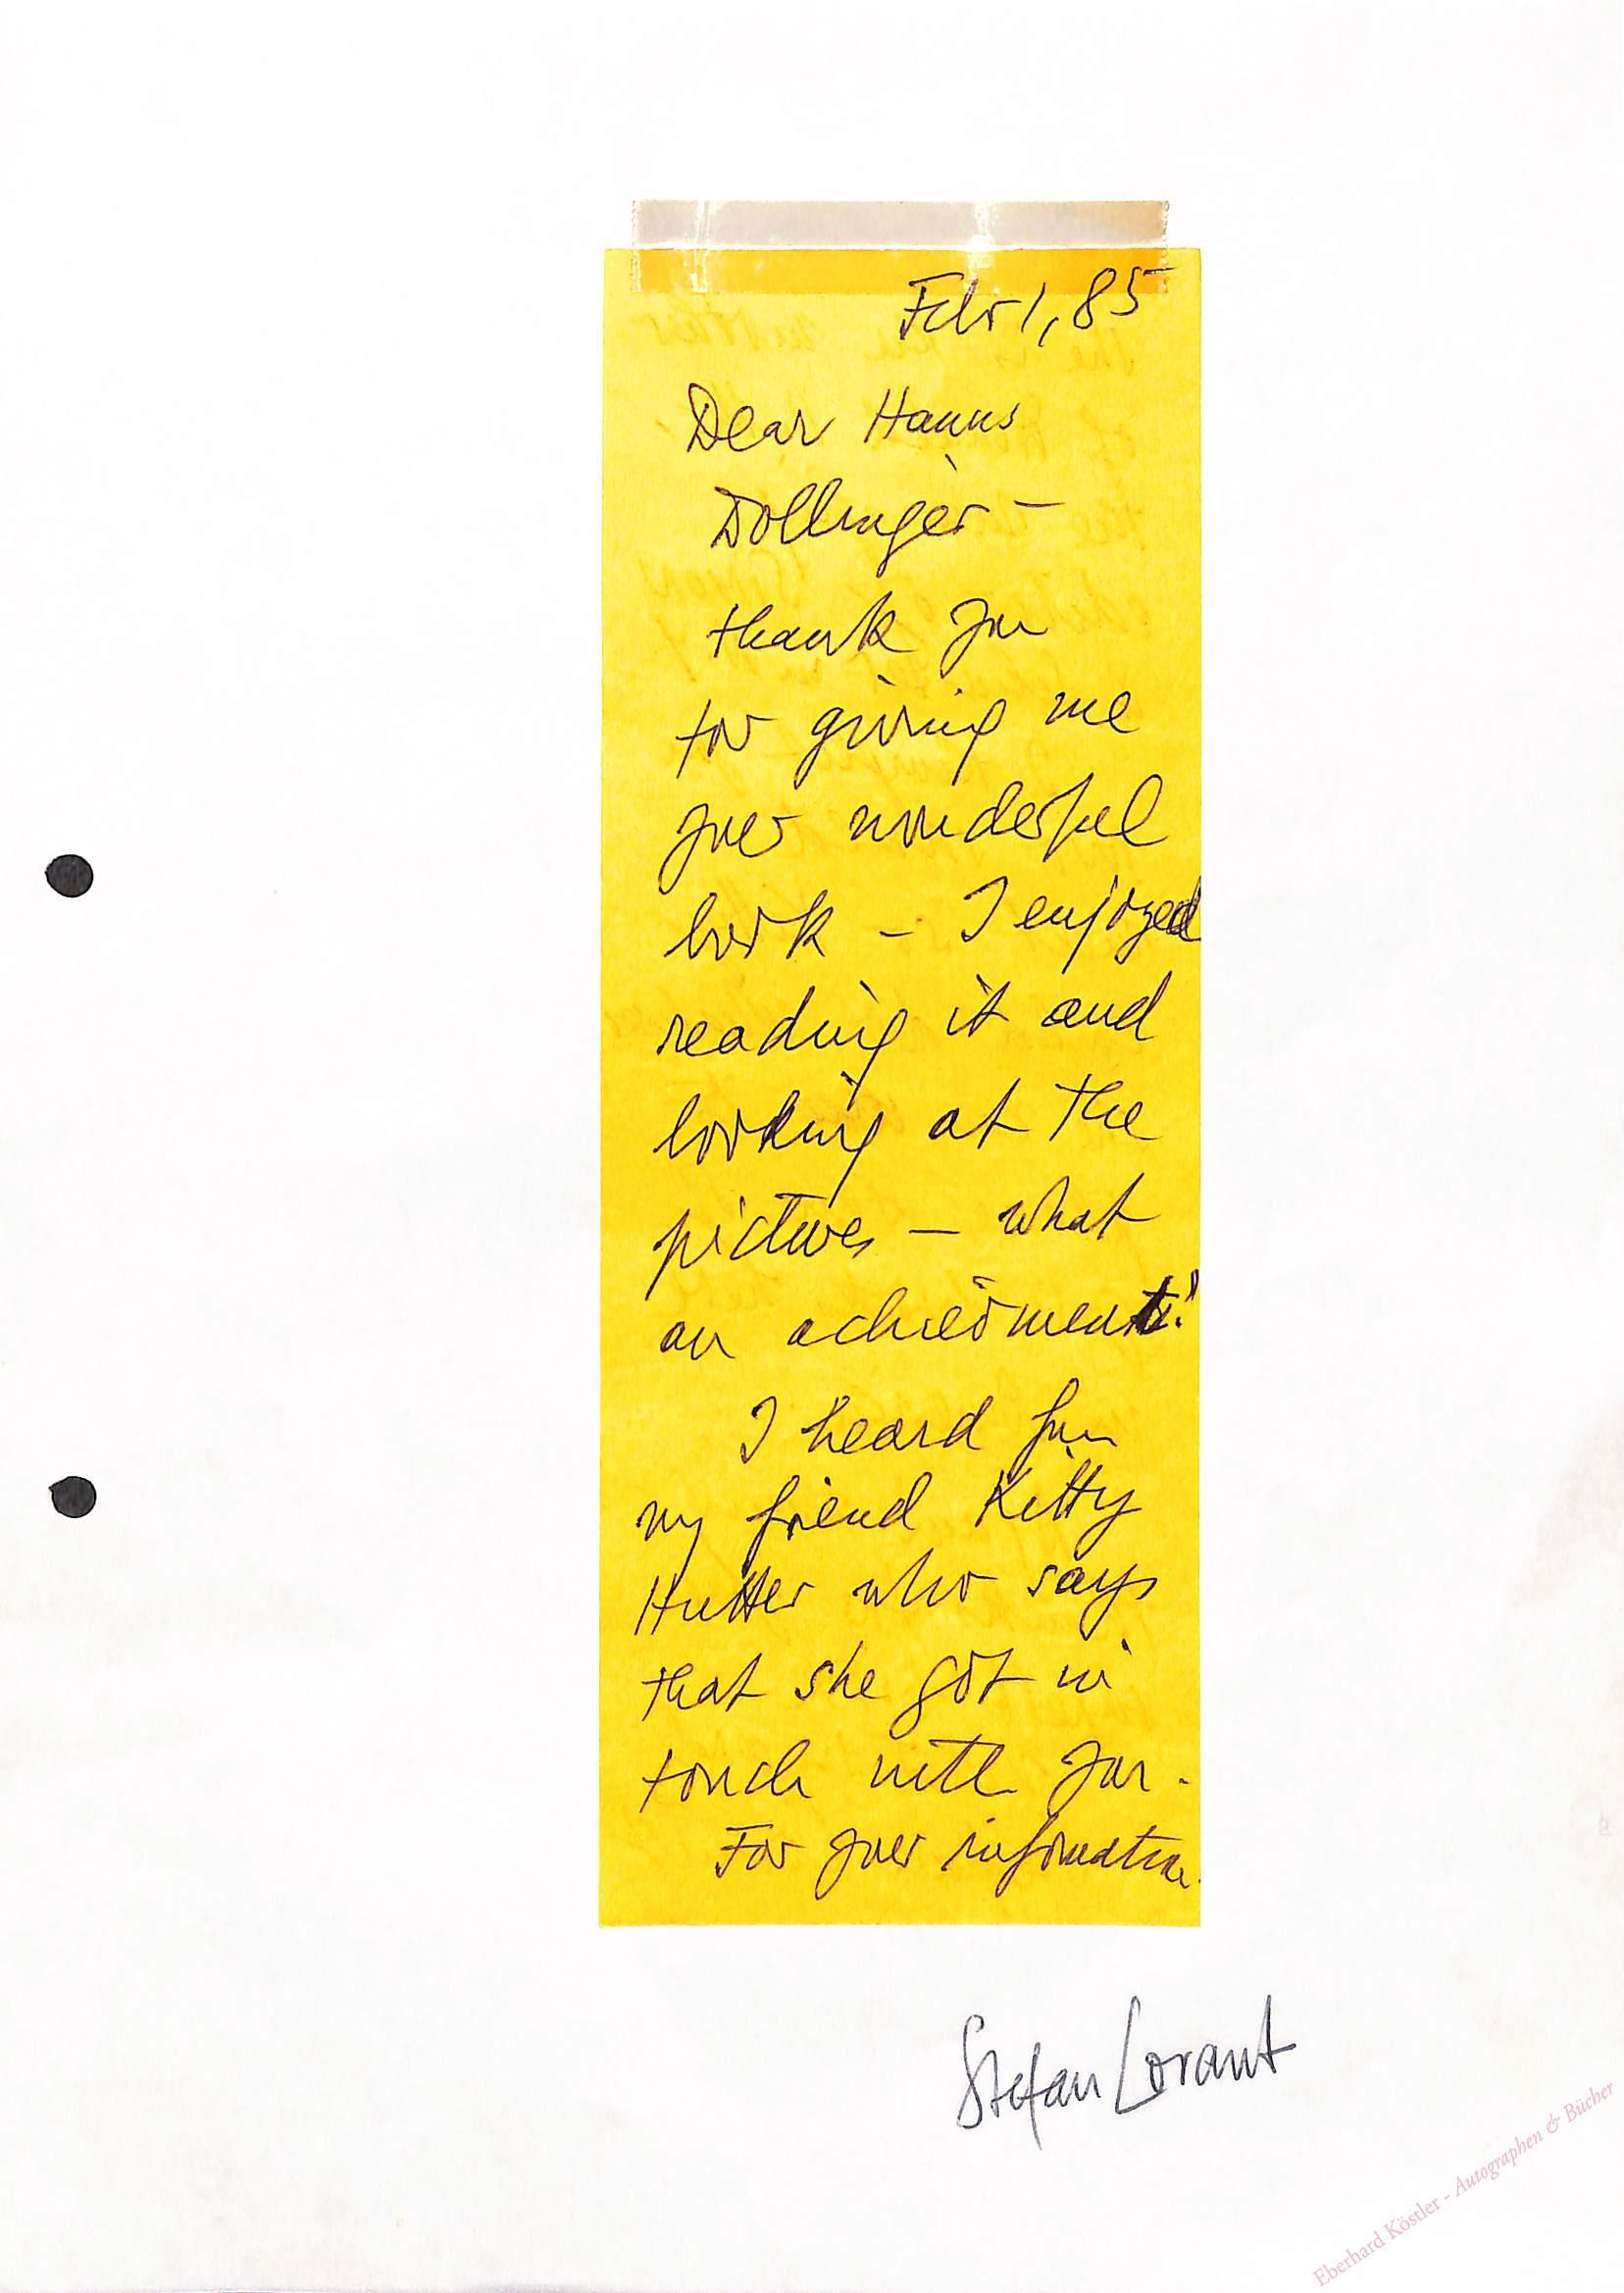 Febr 1, 85
Dear Hanns
Dollinger –
thank you
for giving me
your wonderful
book – I enjoyed
reading it and
looking at the
pictures – what
an achievment!
I heard from
my friend Kitty
Hutter who says
that she got in
touch with you.
For your information
Stefan Lorant
Eberhard Köstler - Autographen & Bücher